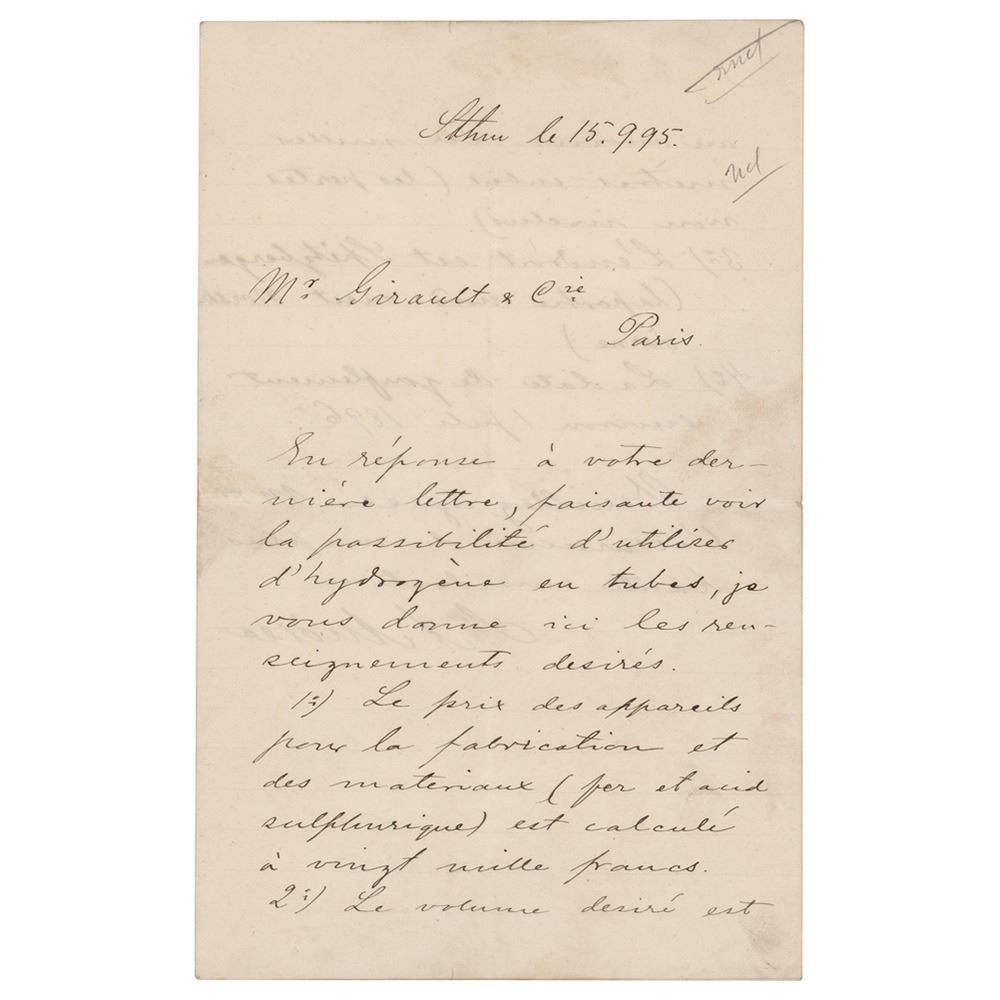 Sthm le 15.9.95.
Mr. Girault & Cie
Paris.
En réponse à votre der-
nière lettre, faisante voir
la possibilité d'utilizer
d'hydrogène en tubes, je
vous donne ici les ren-
seignements desirés.
1:) Le prix des appareils
pour la fabrication et
des materiaux (fer et acid
sulphurique) est calculé
à vingt mille francs.
2:) Le volume desiré est